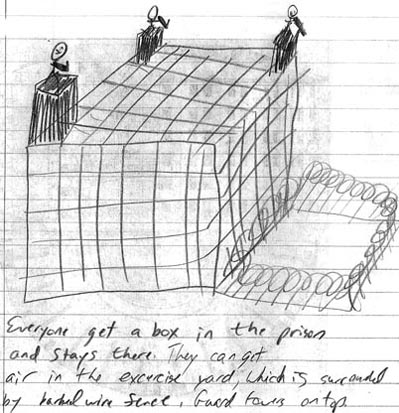 Everyone get a box in the prison
and stays there. They can get
air in the excercise yard, which is surrounded
by barbed wire fence, Guard towers on top